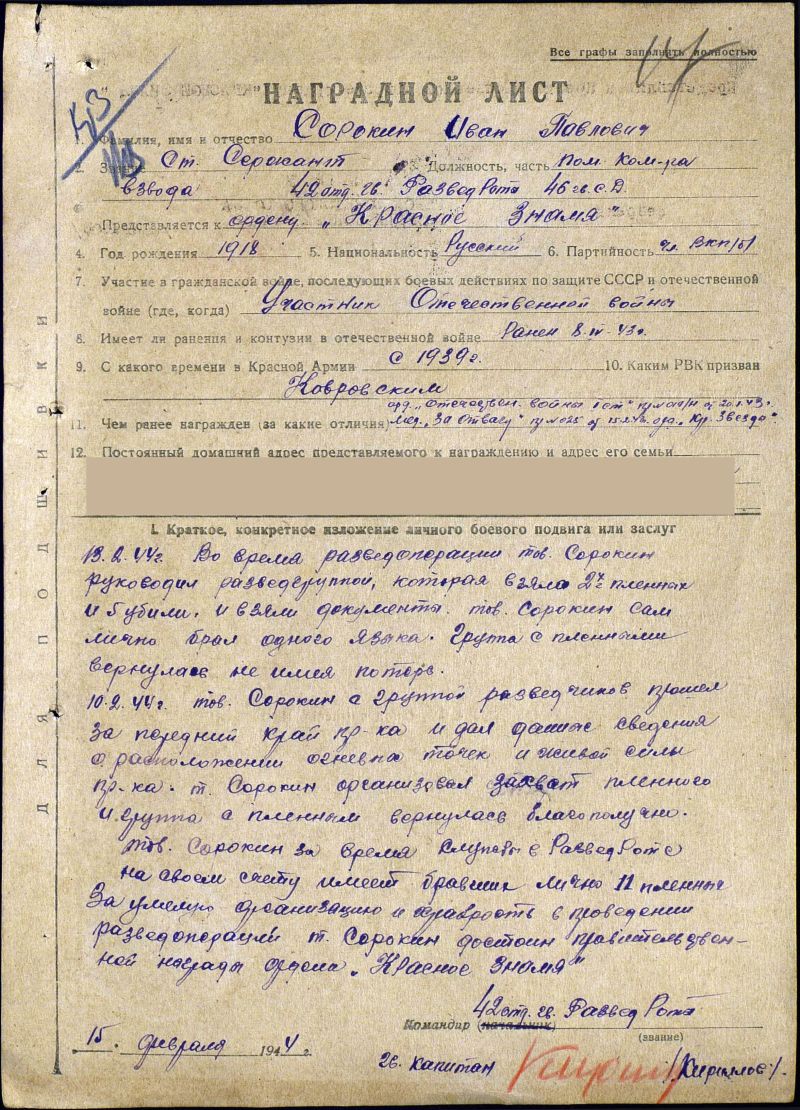 Все графы заполнять полностью
НАГРАДНОЙ ЛИСТ
1. Фамилия, имя и отчество Сорокин Иван Павлович
2. Звание Ст. Сержант 3. Должность, часть пом. ком-ра
взвода 42 отд. гв. РазведРота 46 гв. с.Д.
Представляется к ордену „Красное Знамя"
4. Год рождения 1918 5. Национальность Русский 6. Партийность чл. ВКП/б/
7. Участие в гражданской войне, последующих боевых действиях по защите СССР и отечественной
войне (где, когда) Участник Отечественной войны
8. Имеет ли ранения и контузии в отечественной войне Ранен 8.IV-43г.
9. С какого времени в Красной Армии с 1939г. 10. Каким РВК призван
Ковровским
орд. „Отечествен. войны
11. Чем ранее награжден (за какие отличия) мед. „За Отвагу" орд. „Кр. Звезда"
12. Постоянный домашний адрес представляемого к награждению и адрес его семьи
I. Краткое, конкретное изложение личного боевого подвига или заслуг
13.2.44г. Во время разведоперации тов. Сорокин
руководил разведгруппой, которая взяла 2х пленных
и 5 убили. и взяли документы. тов. Сорокин сам
лично брал одного языка. Группа с пленными
вернулась не имея потерь.
10.2.44г. тов. Сорокин с группой разведчиков прошел
за передний край пр-ка и дал данные сведения
о расположении огневых точек и живой силы
пр-ка. т. Сорокин организовал захват пленного
и группа с пленным вернулась благополучно.
тов. Сорокин за время службы в РазведРоте
на своем счету имеет бравших лично 11 пленных
За умелую организацию и храбрость в проведении
разведоперации т. Сорокин достоин правительствен-
ной награды ордена „Красное Знамя"
42 отд. гв. РазведРота
Командир (начальник)
(звание)
15 февраля 1944 г.
гв. капитан /Кириллов/.
ДЛЯ ПОДШИВКИ